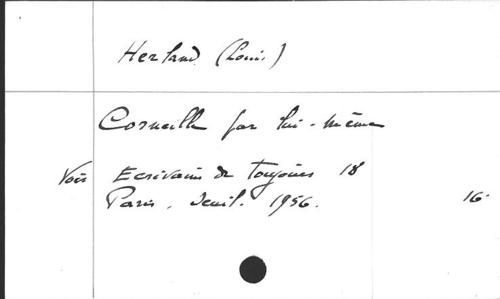 Herland (Louis)
Corneille par lui-même
Voir Ecrivains de toujours 18
Paris, Seuil. 1956. 16